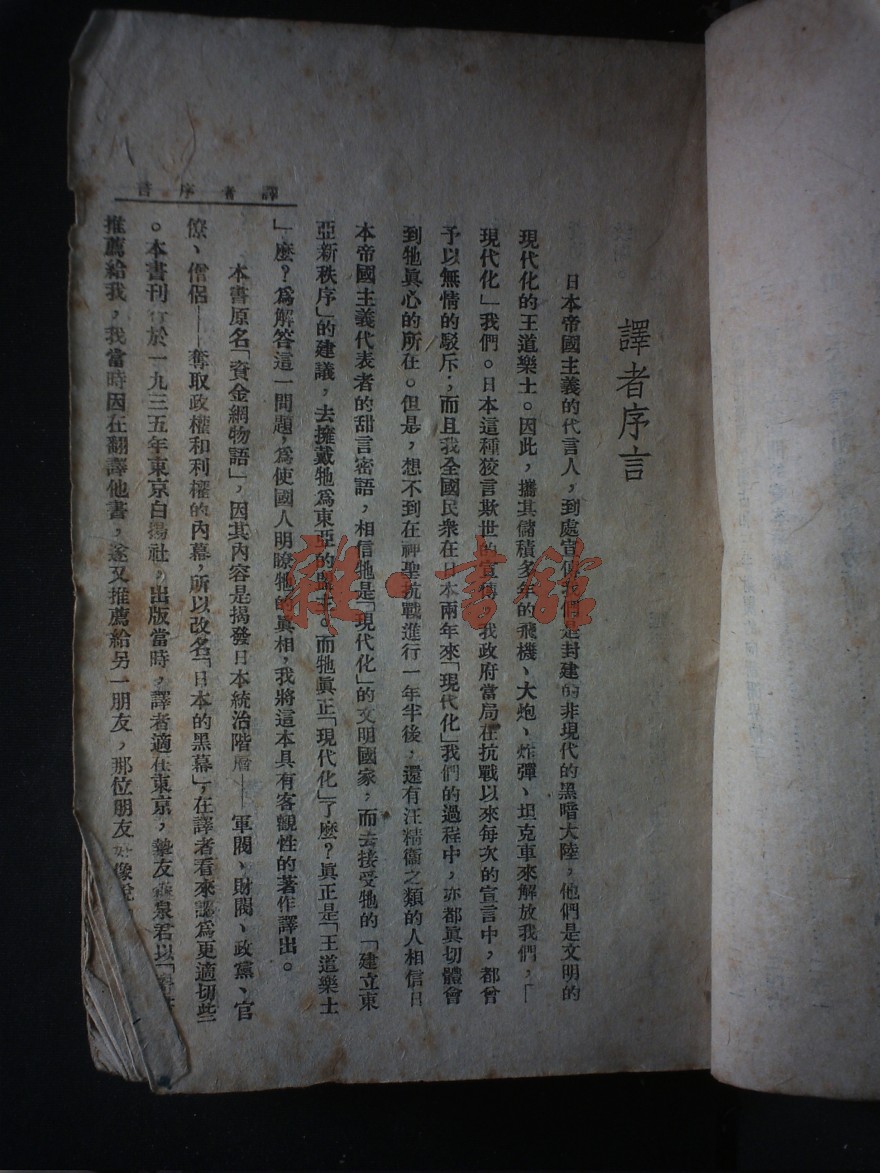 譯者序言
譯者序言
日本帝國主義的代言人，到處宣傳我們是封建的非現代的黑暗大陸，他們是文明的
現代化的王道樂土。因此，攜其儲積多年的飛機、大炮、炸彈、坦克車來解放我們，「
現代化」我們。日本這種狡言欺世的宣傳，我政府當局在抗戰以來每次的宣言中，都曾
予以無情的駁斥；而且我全國民衆在日本兩年來「現代化」我們的過程中，亦都眞切體會
到牠眞心的所在。但是，想不到在神聖抗戰進行一年半後，還有汪精衞之類的人相信日
本帝國主義代表者的甜言密語，相信牠是「現代化」的文明國家，而去接受牠的「建立東
亞新秩序」的建議，去擁戴牠爲東亞的盟主。而牠眞正「現代化」了麼？眞正是「王道樂土
」麼？爲解答這一問題，爲使國人明瞭牠的眞相，我將這本具有客觀性的著作譯出。
本書原名「資金網物語」，因其內容是揭發日本統治階層——軍閥、財閥、政黨、官
僚、僧侶——奪取政權和利權的內幕，所以改名「日本的黑幕」，在譯者看來認爲更適切些
。本書刊行於一九三五年東京白揚社，出版當時，譯者適在東京，摯友 泉君以「
推薦給我，我當時因在翻譯他書，遂又推薦給另一朋友，那位朋友好像說
雜·書館